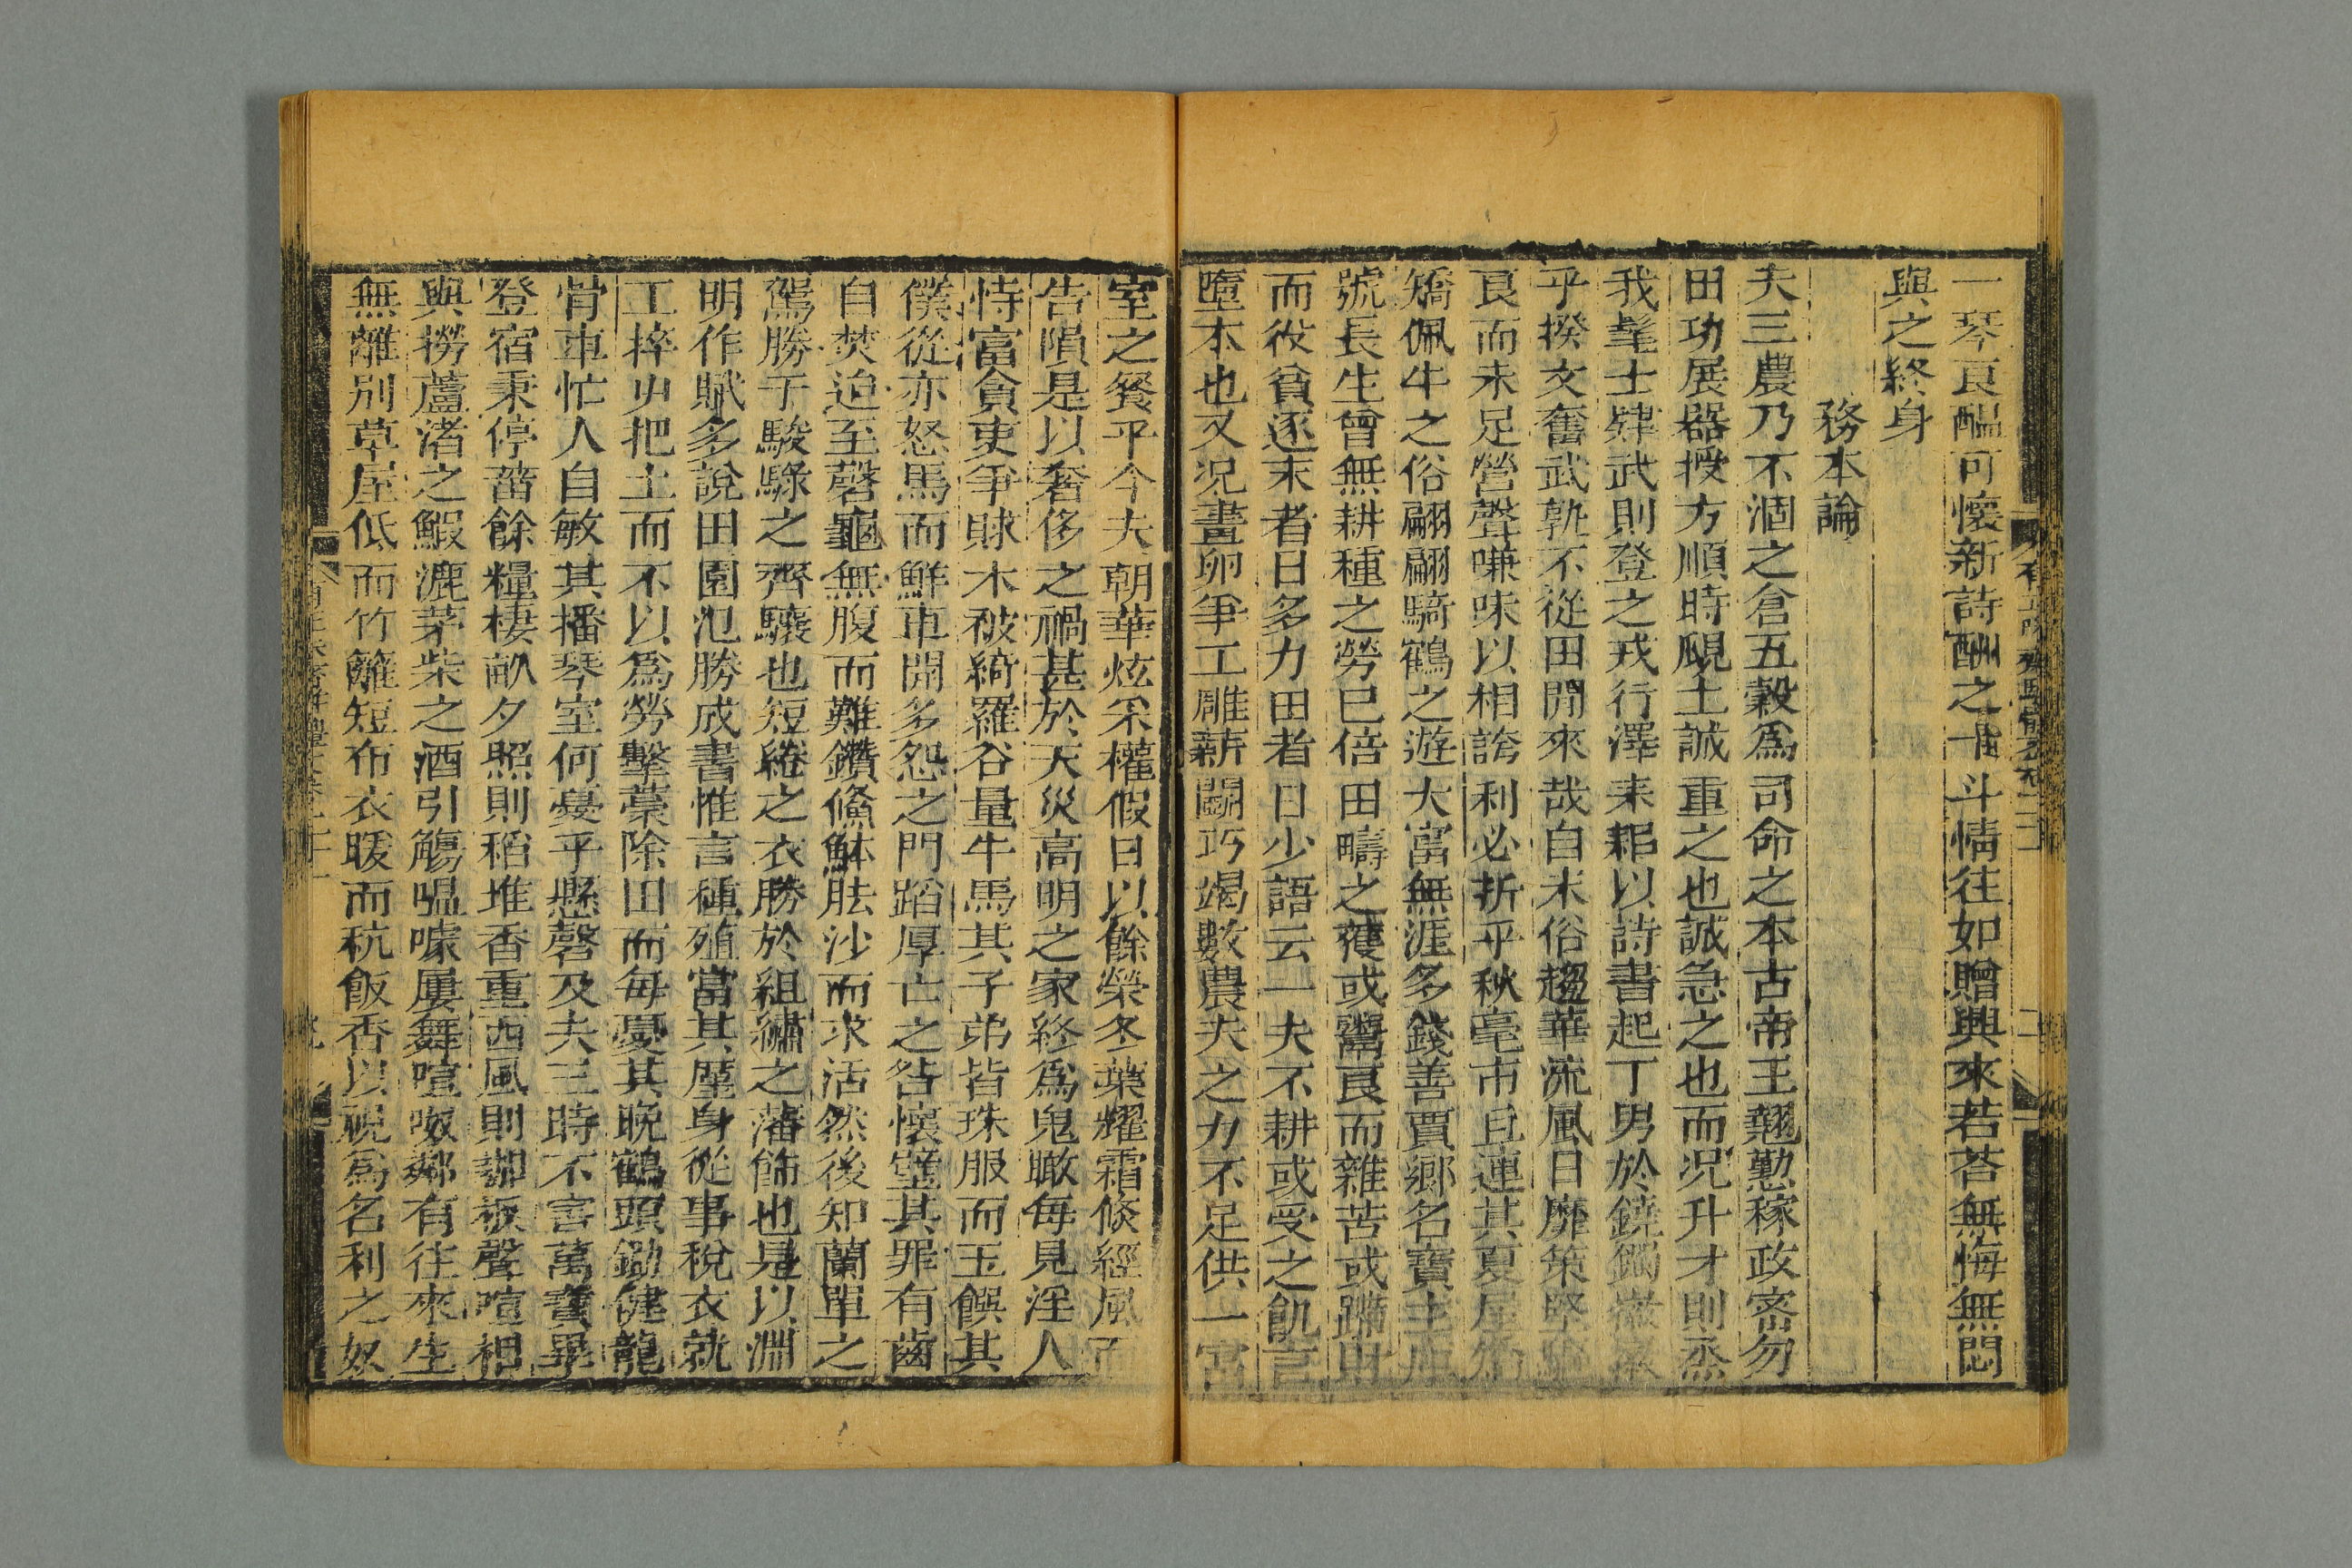 一琴良醞可懷新詩酬之十斗情往如贈興來若荅無悔無悶
與之終身
務本論
夫三農乃不涸之倉五穀爲司命之本古帝王翹懃稼政密勿
田功展器授方順時覛土誠重之也誠急之也而况升才則烝
我髦士肄武則登之戎行澤耒耜以詩書起丁男於鐃鐲
乎揆文奮武孰不從田閒來哉自末俗趨華流風日靡策堅
良而未足營聲嗛味以相誇利必折乎秋毫市且連其夏屋
矯佩牛之俗翩翩騎鶴之遊大富無涯多錢善賈鄉名寶
號長生曾無耕種之勞巳倍田疇之穫或鬻良而雜苦或蹛財
而役貧逐末者日多力田者日少語云一夫不耕或受之飢言
墮本也又况畫卵爭工雕薪鬭巧竭數農夫之力不足供一富
室之餐乎今夫朝華炫采權假日以餘榮冬葉耀霜倏經風而
告隕是以奢侈之禍甚於天災高明之家終爲鬼瞰每見淫人
恃富貪吏爭財木被綺羅谷量牛馬其子弟皆珠服而玉饌其
僕從亦怒馬而鮮車開多怨之門蹈厚亡之咎懷璧其罪有齒
自焚迫至磬龜無腹而難鑽鯈䱁胠沙而求活然後知蘭單之
駕勝于駿騄之齊驤也短綣之衣勝於組繡之藩飾也是以淵
明作賦多說田園氾勝成書惟言種殖當其廛身從事稅衣就
工捽屮把土而不以爲勞擊藁除田而每憂其晚鶴頭鋤健龍
骨車忙人自敏其播琴室何憂乎懸磬及夫三時不害萬寶畢
登宿秉停蓄餘糧棲畝夕照則稻堆香重西風則耞板聲喧相
與撈蘆渚之鰕漉茅柴之酒引觴嗢噱屢舞喧呶鄰有往來生
無離別草屋低而竹籬短布衣暖而秔飯香以視爲名利之奴